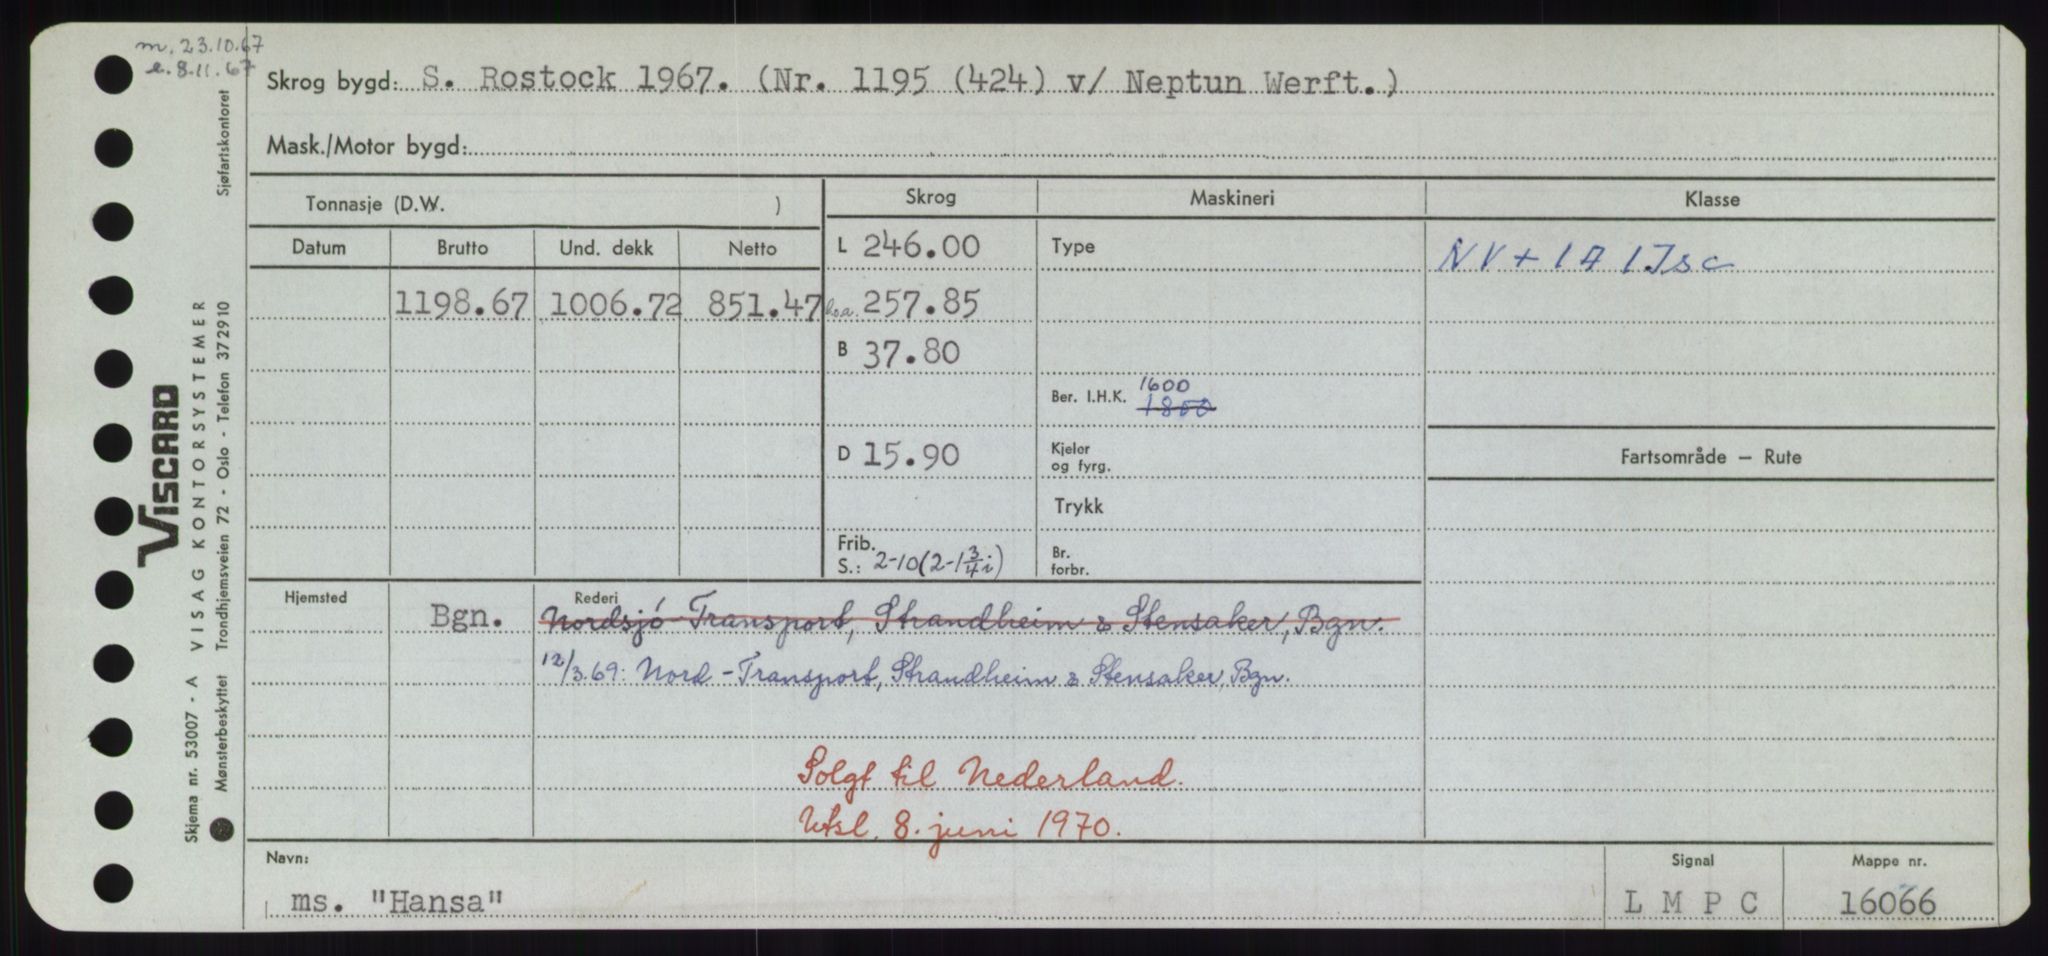 m. 23.10.67
e. 8.11.67
Skrog bygd: S. Rostock 1967. (Nr. 1195 (424) v/ Neptun Werft.)
Mask./Motor bygd:
Tonnasje (D.W. )
Skrog Maskineri Klasse
Datum Brutto Und. dekk Netto
L 246.00 Type NV + 1 A 1 Isc
1198.67 1006.72 851.47 l.o.a. 257.85
B 37.80
1600
Ber. I.H.K. 1800
D 15.90 Kjeler og fyrg.
Fartsområde — Rute
Trykk
Frib. S.: 2-10 (2-1 3/4 i) Br. forbr.
Hjemsted Rederi
Bgn. Nordsjö-Transport, Strandheim & Stensaker, Bgn.
12/3.69: Nord-Transport, Strandheim & Stensaker, Bgn.
Solgt til Nederland.
Utsl. 8. juni 1970.
Navn: Signal Mappe nr.
ms. "Hansa" L M P C 16066
VISCARD
Skjema nr. 53007 - A VISAG KONTORSYSTEMER
Mønsterbeskyttet Trondhjemsveien 72 - Oslo - Telefon 37 29 10
Sjøfartskontoret